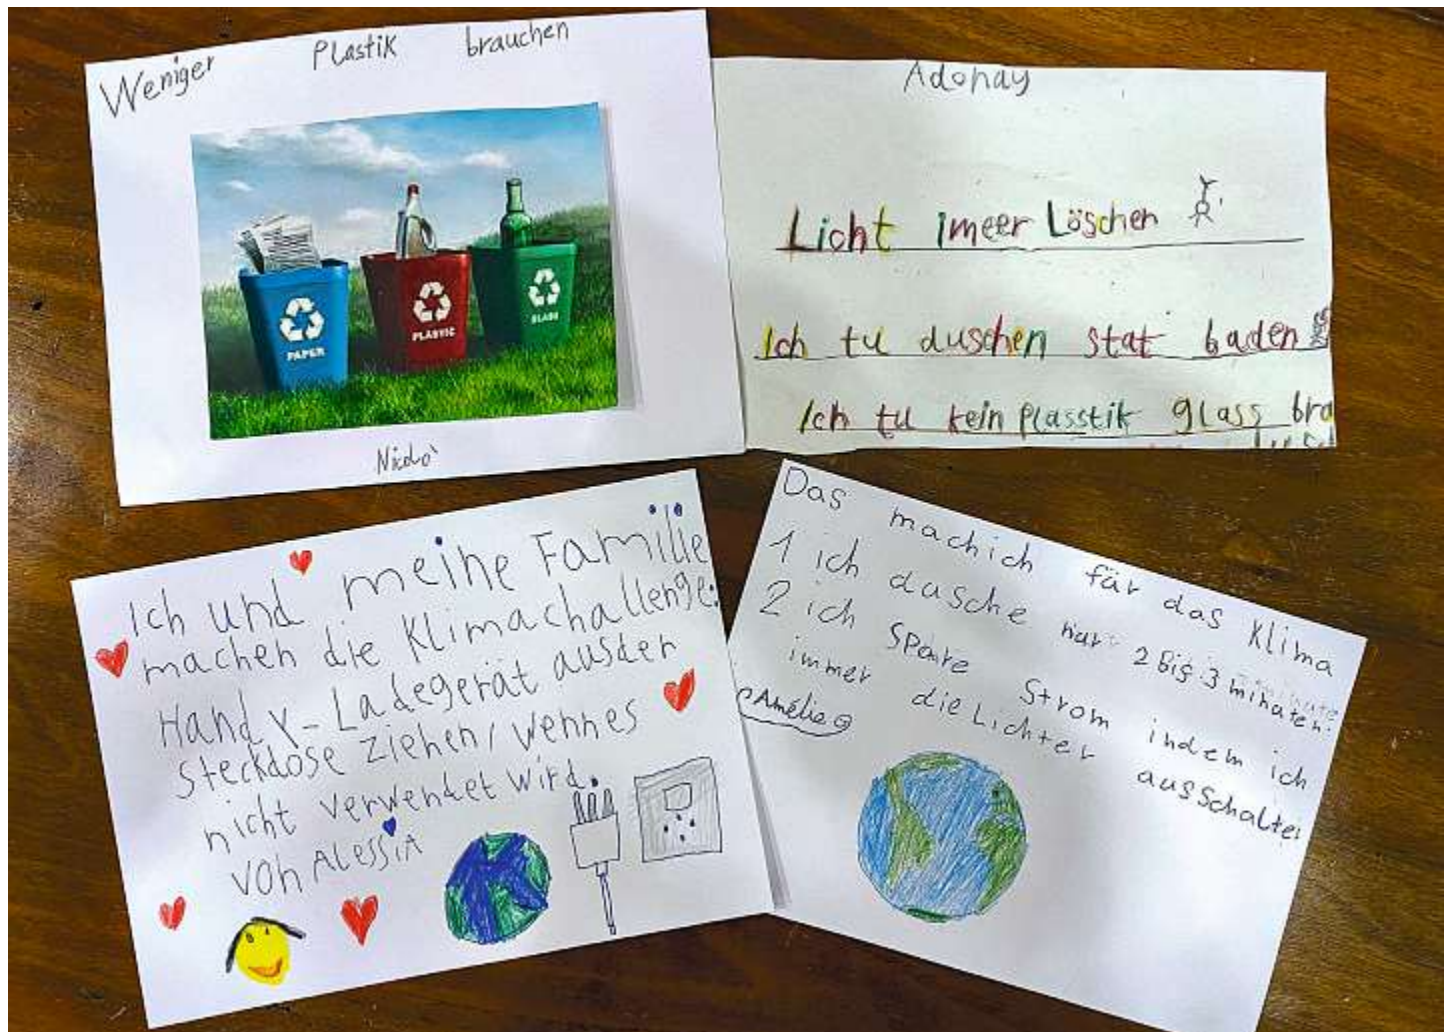 Weniger Plastik brauchen
PAPER
PLASTIC
GLASS
Nicolo`
Adonay
Licht imeer Löschen
Ich tu duschen stat baden
Ich tu kein Plasstik glass bra
Ich und meine Familie
machen die Klimachallenge:
Handy-Ladegerät ausder
Steckdose ziehen, wennes
nicht verwendet wird.
von ALESSiA
Das machich für das Klima
1 ich dusche nur 2 bis 3 minuten.
2 ich Spare Strom indem ich
immer die Lichter ausschalte
Amélie